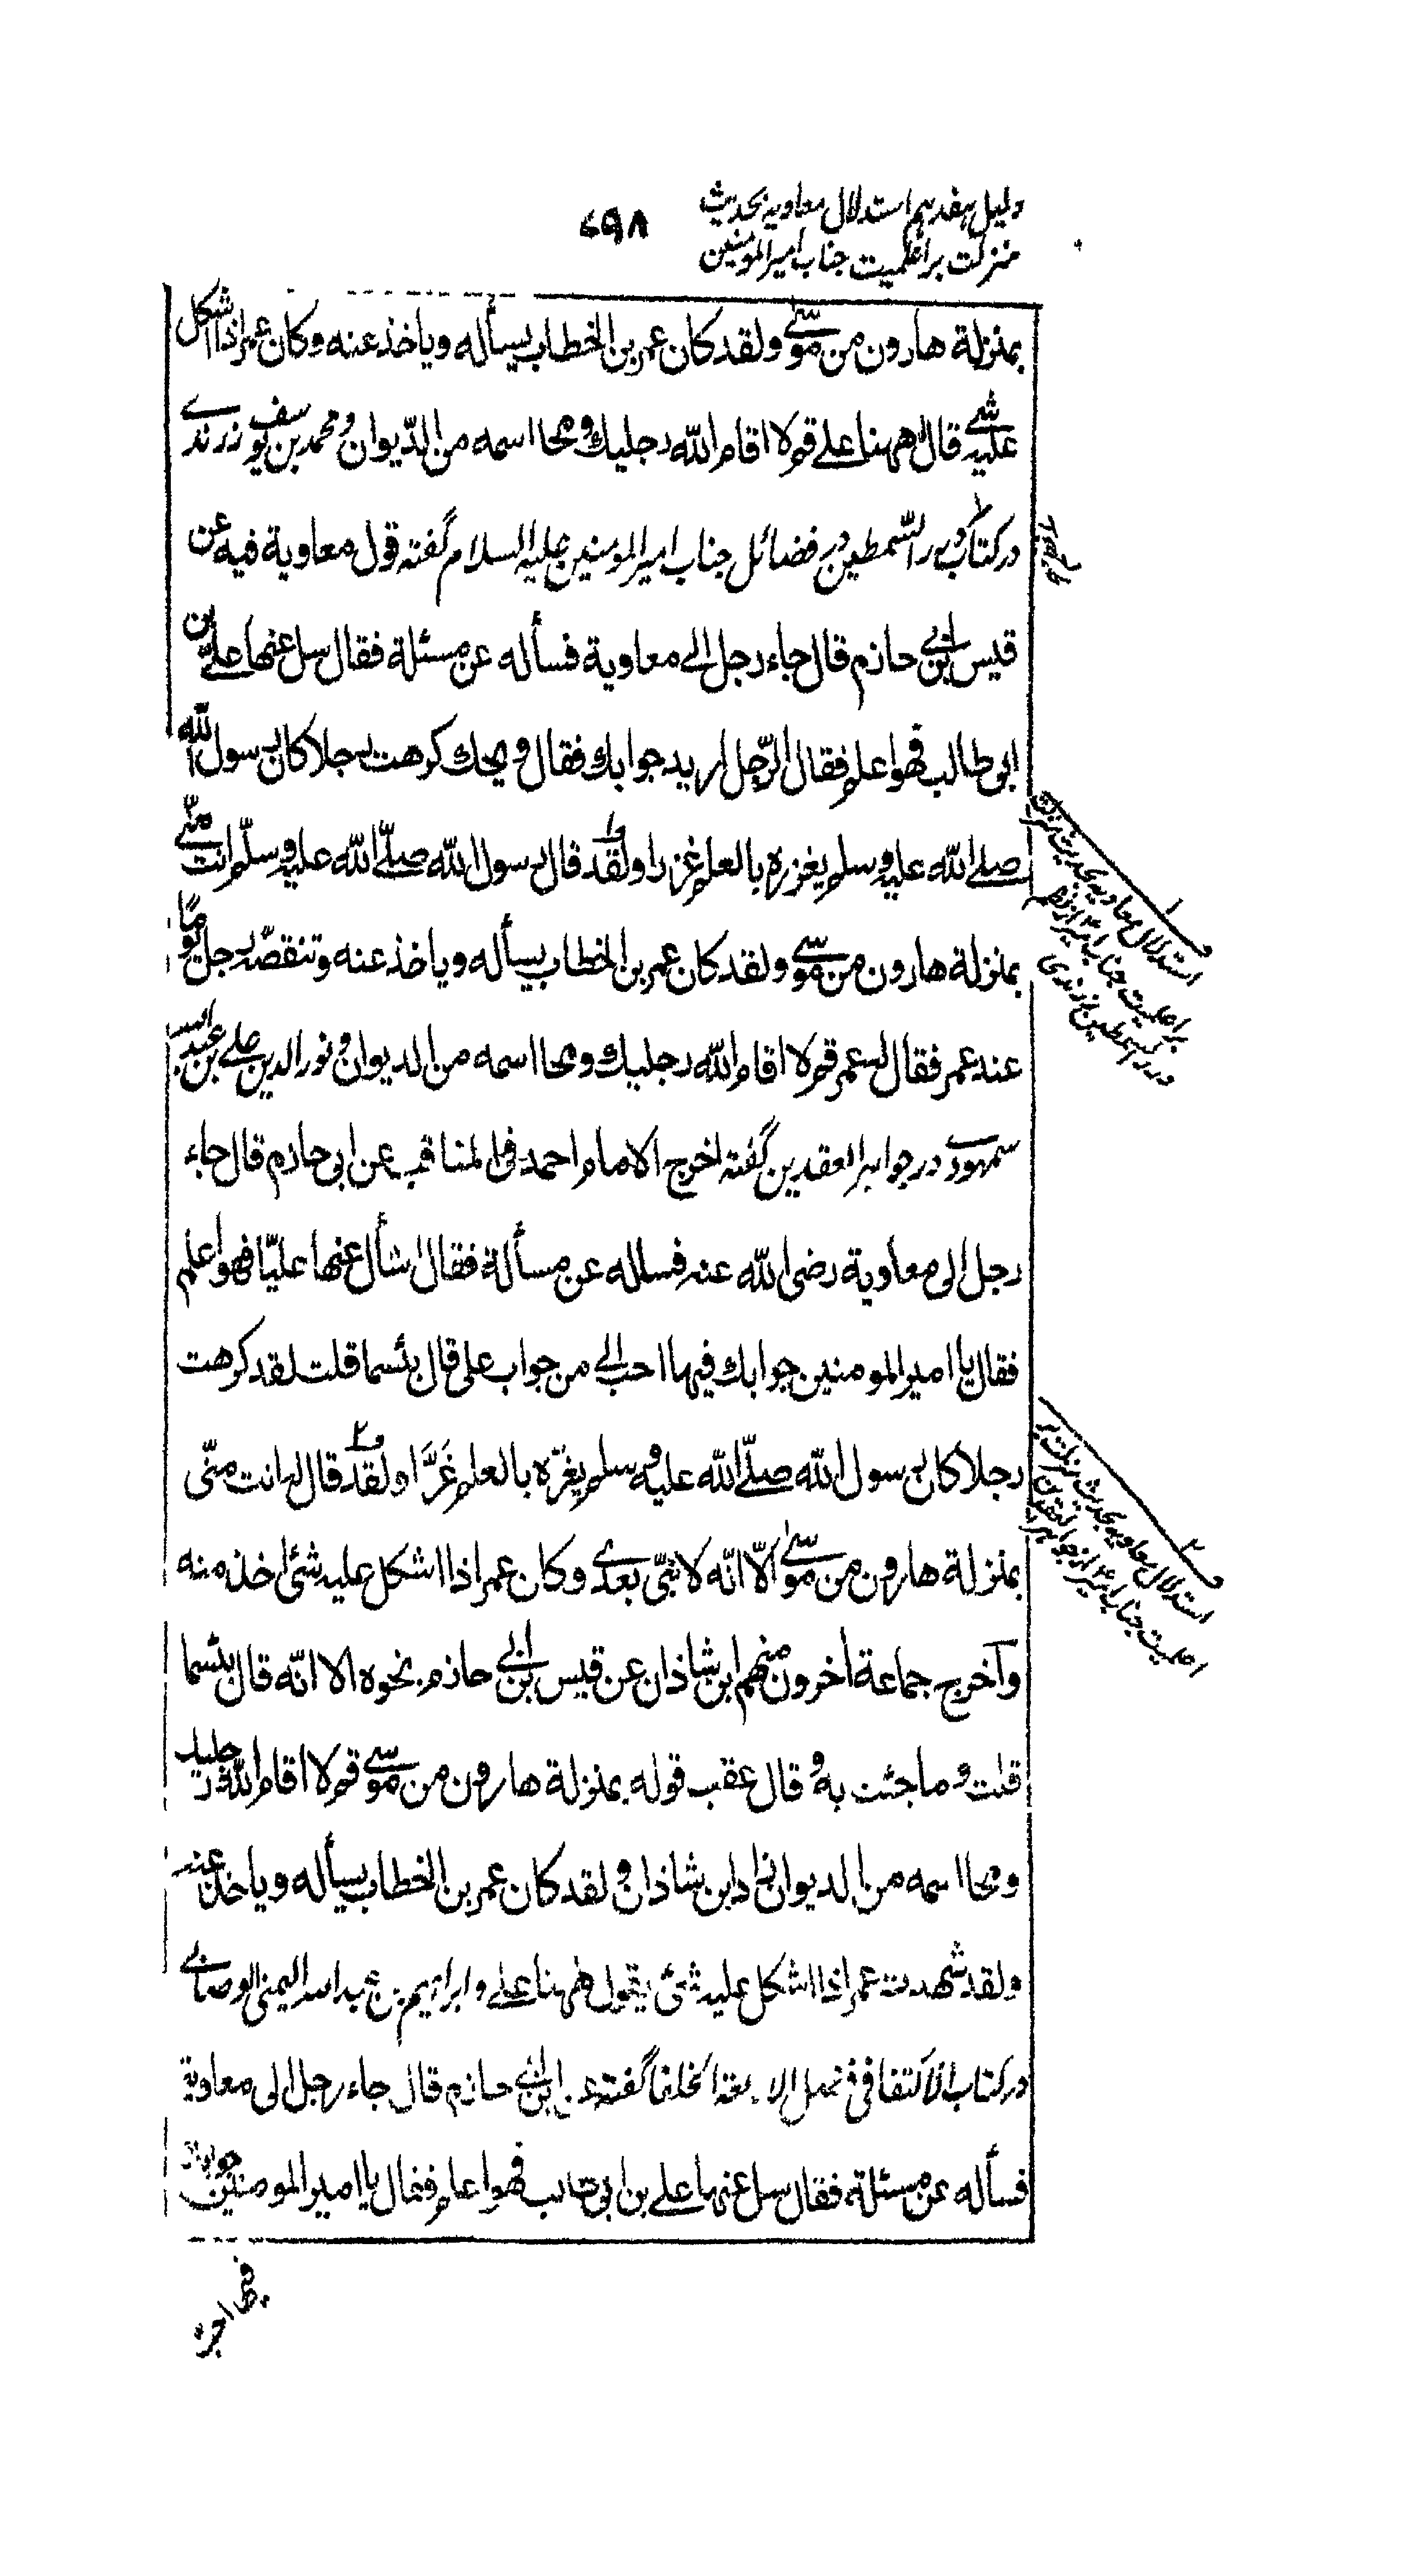 دلیل هفدهم استدلال معاویه بحدیث
منزلت بر اعلمیت جناب امیرالمومنین
۶۹۸
بمنزلة هارون من موسى ولقد كان عمر بن الخطاب يسأله وياخذ عنه وكان عمر اذا اشكل
عليه شئ قال ههنا علي قم لا اقام الله رجليك ومحا اسمه من الدّيوان ومحمد بن يوسف زرندے
در کتاب درر السّمطین در فضائل جناب امیر المومنین علیه السلام گفته قول معاوية فيه عن
قيس بن ابي حازم قال جاء رجل الى معاوية فسأله عن مسئلة فقال سل عنها علي بن
ابى طالب فهو اعلم فقال الرّجل اريد جوابك فقال ويحك كرهت رجلا كان رسول الله
صلى الله عليه وسلم يغزره بالعلم غزرا ولقد قال رسول الله صلّى الله عليه وسلّم انت منّي
بمنزلة هارون من موسى ولقد كان عمر بن الخطاب يسأله وياخذ عنه وتنقصّه رجل يومًا
عند عمر فقال له عمر قم لا اقام الله رجليك ومحا اسمه من الديوان ونور الدين علي بن عبد الله
سمہودے در جواہر العقدین گفته اخرج الامام احمد فى المناقب عن ابى حازم قال جاء
رجل الى معاوية رضى الله عنه فسأله عن مسألة فقال اسأل عنها عليّا فهو اعلم
فقال يا امير المومنين جوابك فيها احب الى من جواب على قال بئسما قلت لقد كرهت
رجلا كان رسول الله صلّى الله عليه وسلم يغرّه بالعلم غَرَّا ولقد قال له انت منّى
بمنزلة هارون من موسى الّا انّه لا نبّى بعدى وكان عمر اذا اشكل عليه شئ اخذ منه
وآخرج جماعة آخرون منهم ابن شاذان عن قيس بن ابي حازم بنحوه الا انّه قال بئسما
قلت وما جئت به وقال عقب قوله بمنزلة هارون من موسى قم لا اقام الله رجليك
ومحا اسمه من الديوان زاد ابن شاذان ولقد كان عمر بن الخطاب يسأله وياخذ عنه
ولقد شهدت عمر اذا اشكل عليه شئ يقول ههنا علي وابراهيم بن عبد الله اليمنى الوصابى
در کتاب الاکتفا فی فضل الاربعة الخلفا گفته عن ابن ابي حازم قال جاء رجل الى معاوية
فسأله عن مسئلة فقال سل عنها علي بن ابى طالب فهو اعلم فقال يا امير المومنين جوابك
فيها احب
۱
استدلال معاویه بحدیث منزلت
بر اعلمیت جناب امیر از نظم
درر السمطین زرندی
۲
استدلال معاویه بحدیث منزلت بر
اعلمیت جناب امیر از جواهر العقدین